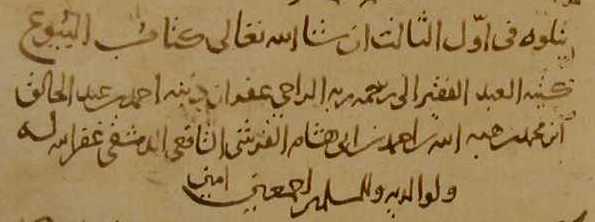 يتلوه في اول الثالث ان شا الله تعالى كتاب البيوع
كتبه العبد الفقير الى رحمه ربه الراجي عفوان ذنبه احمد بن عبد الخالق
ابن محمد بن هبه الله بن احمد بن ابي هشام القرشي الشافعي الدمشقي غفر الله له
ولوالديه وللمسلمين اجمعين امين